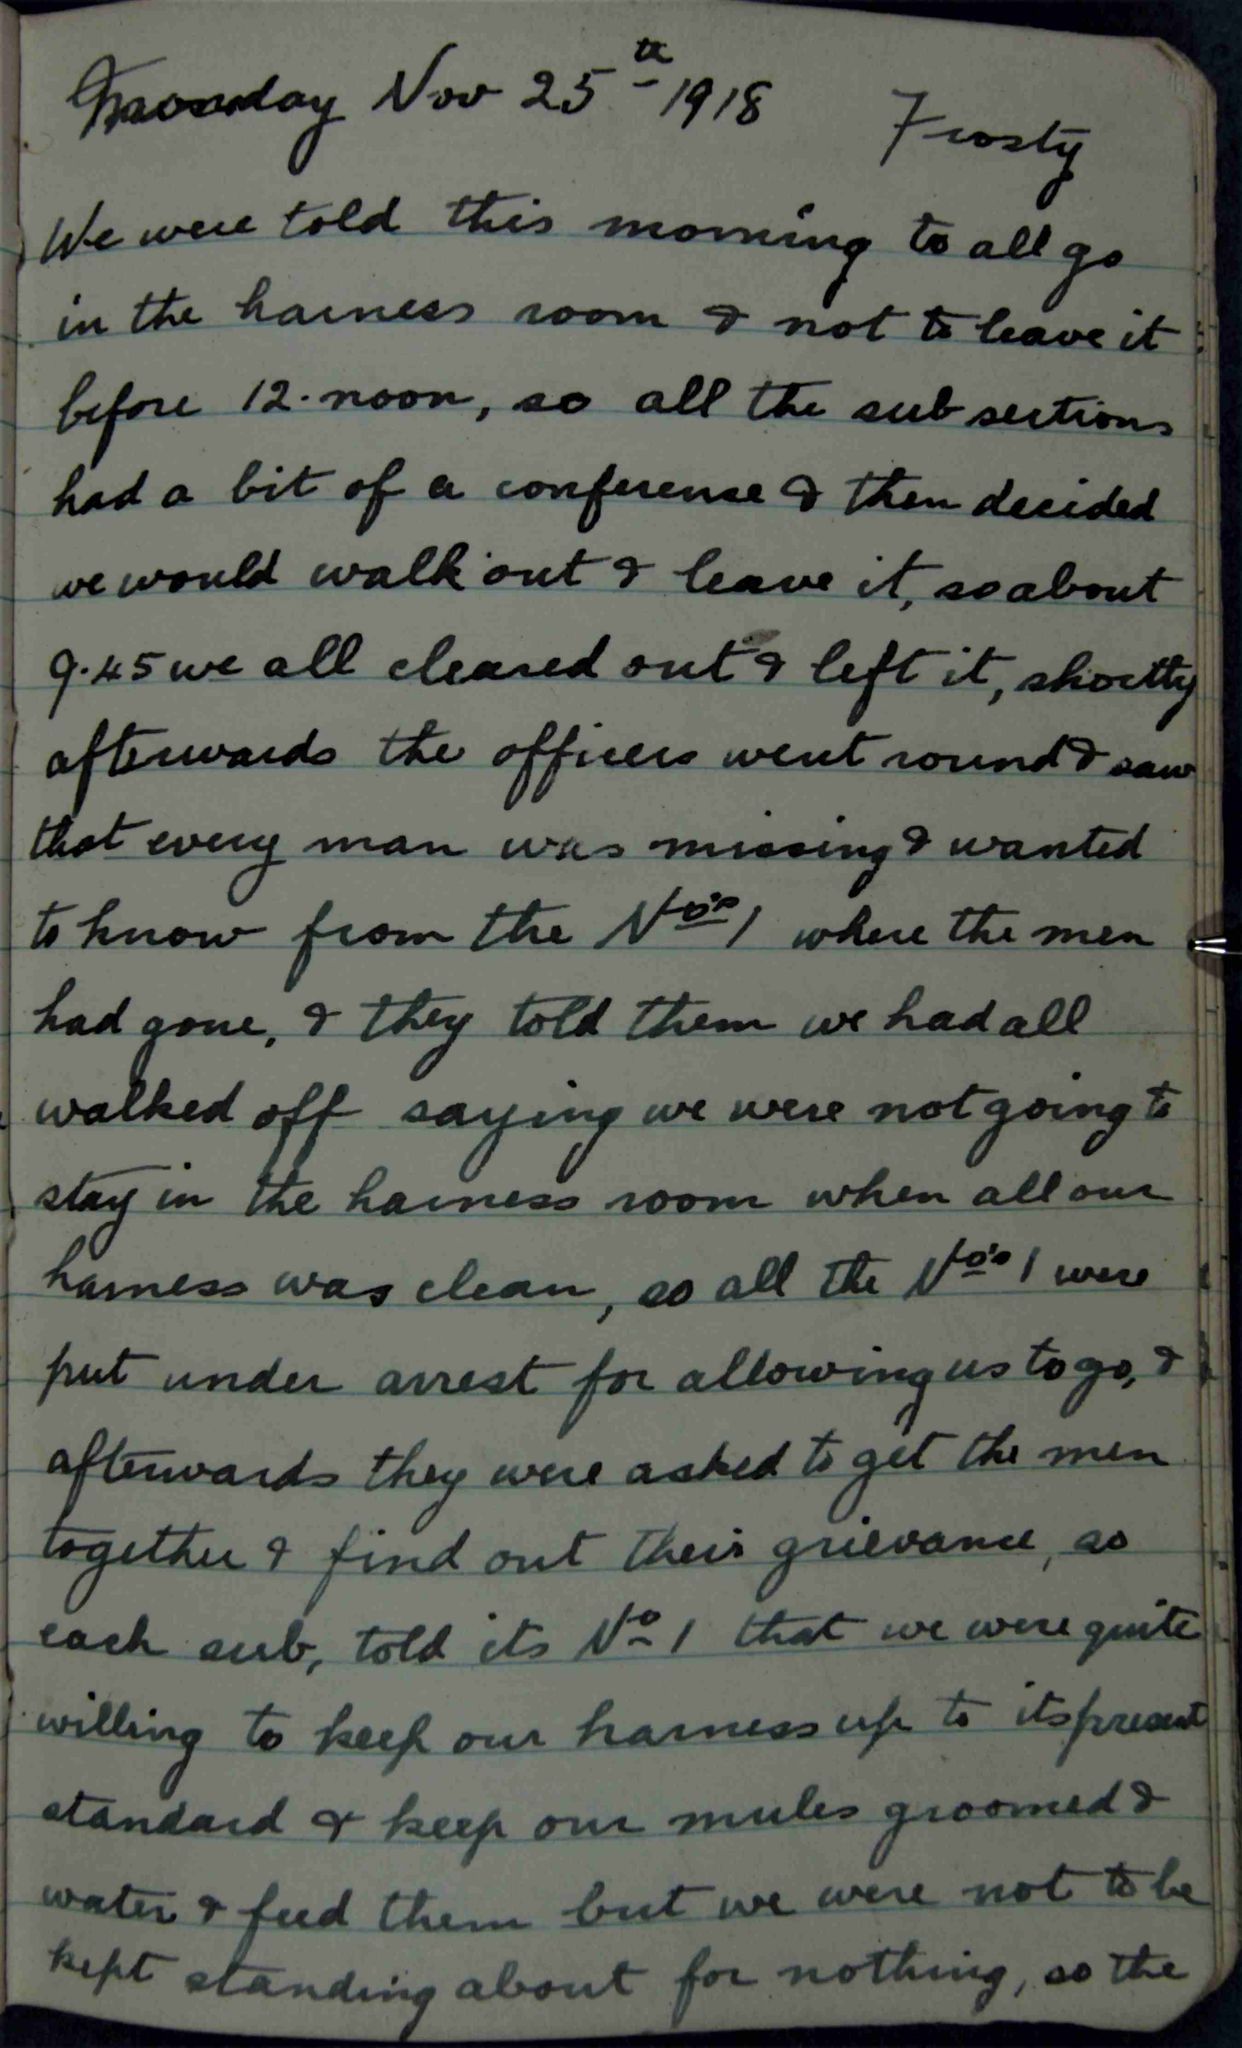 Monday Nov 25th 1918 Frosty
We were told this morning to all go
in the harness room & not to leave it
before 12. noon, so all the sub sections
had a bit of a conference & then decided
we would walk out & leave it, so about
9.45 we all cleared out & left it, shortly
afterwards the officers went round & saw
that every man was missing & wanted
to know from the No's 1 where the men
had gone, & they told them we had all
walked off saying we were not going to
stay in the harness room when all our
harness was clean, so all the No's 1 were
put under arrest for allowing us to go, &
afterwards they were asked to get the men
together & find out their grievance, so
each sub, told its No 1 that we were quite
willing to keep our harness up to its present
standard & keep our mules groomed &
water & feed them but we were not to be
kept standing about for nothing, so the